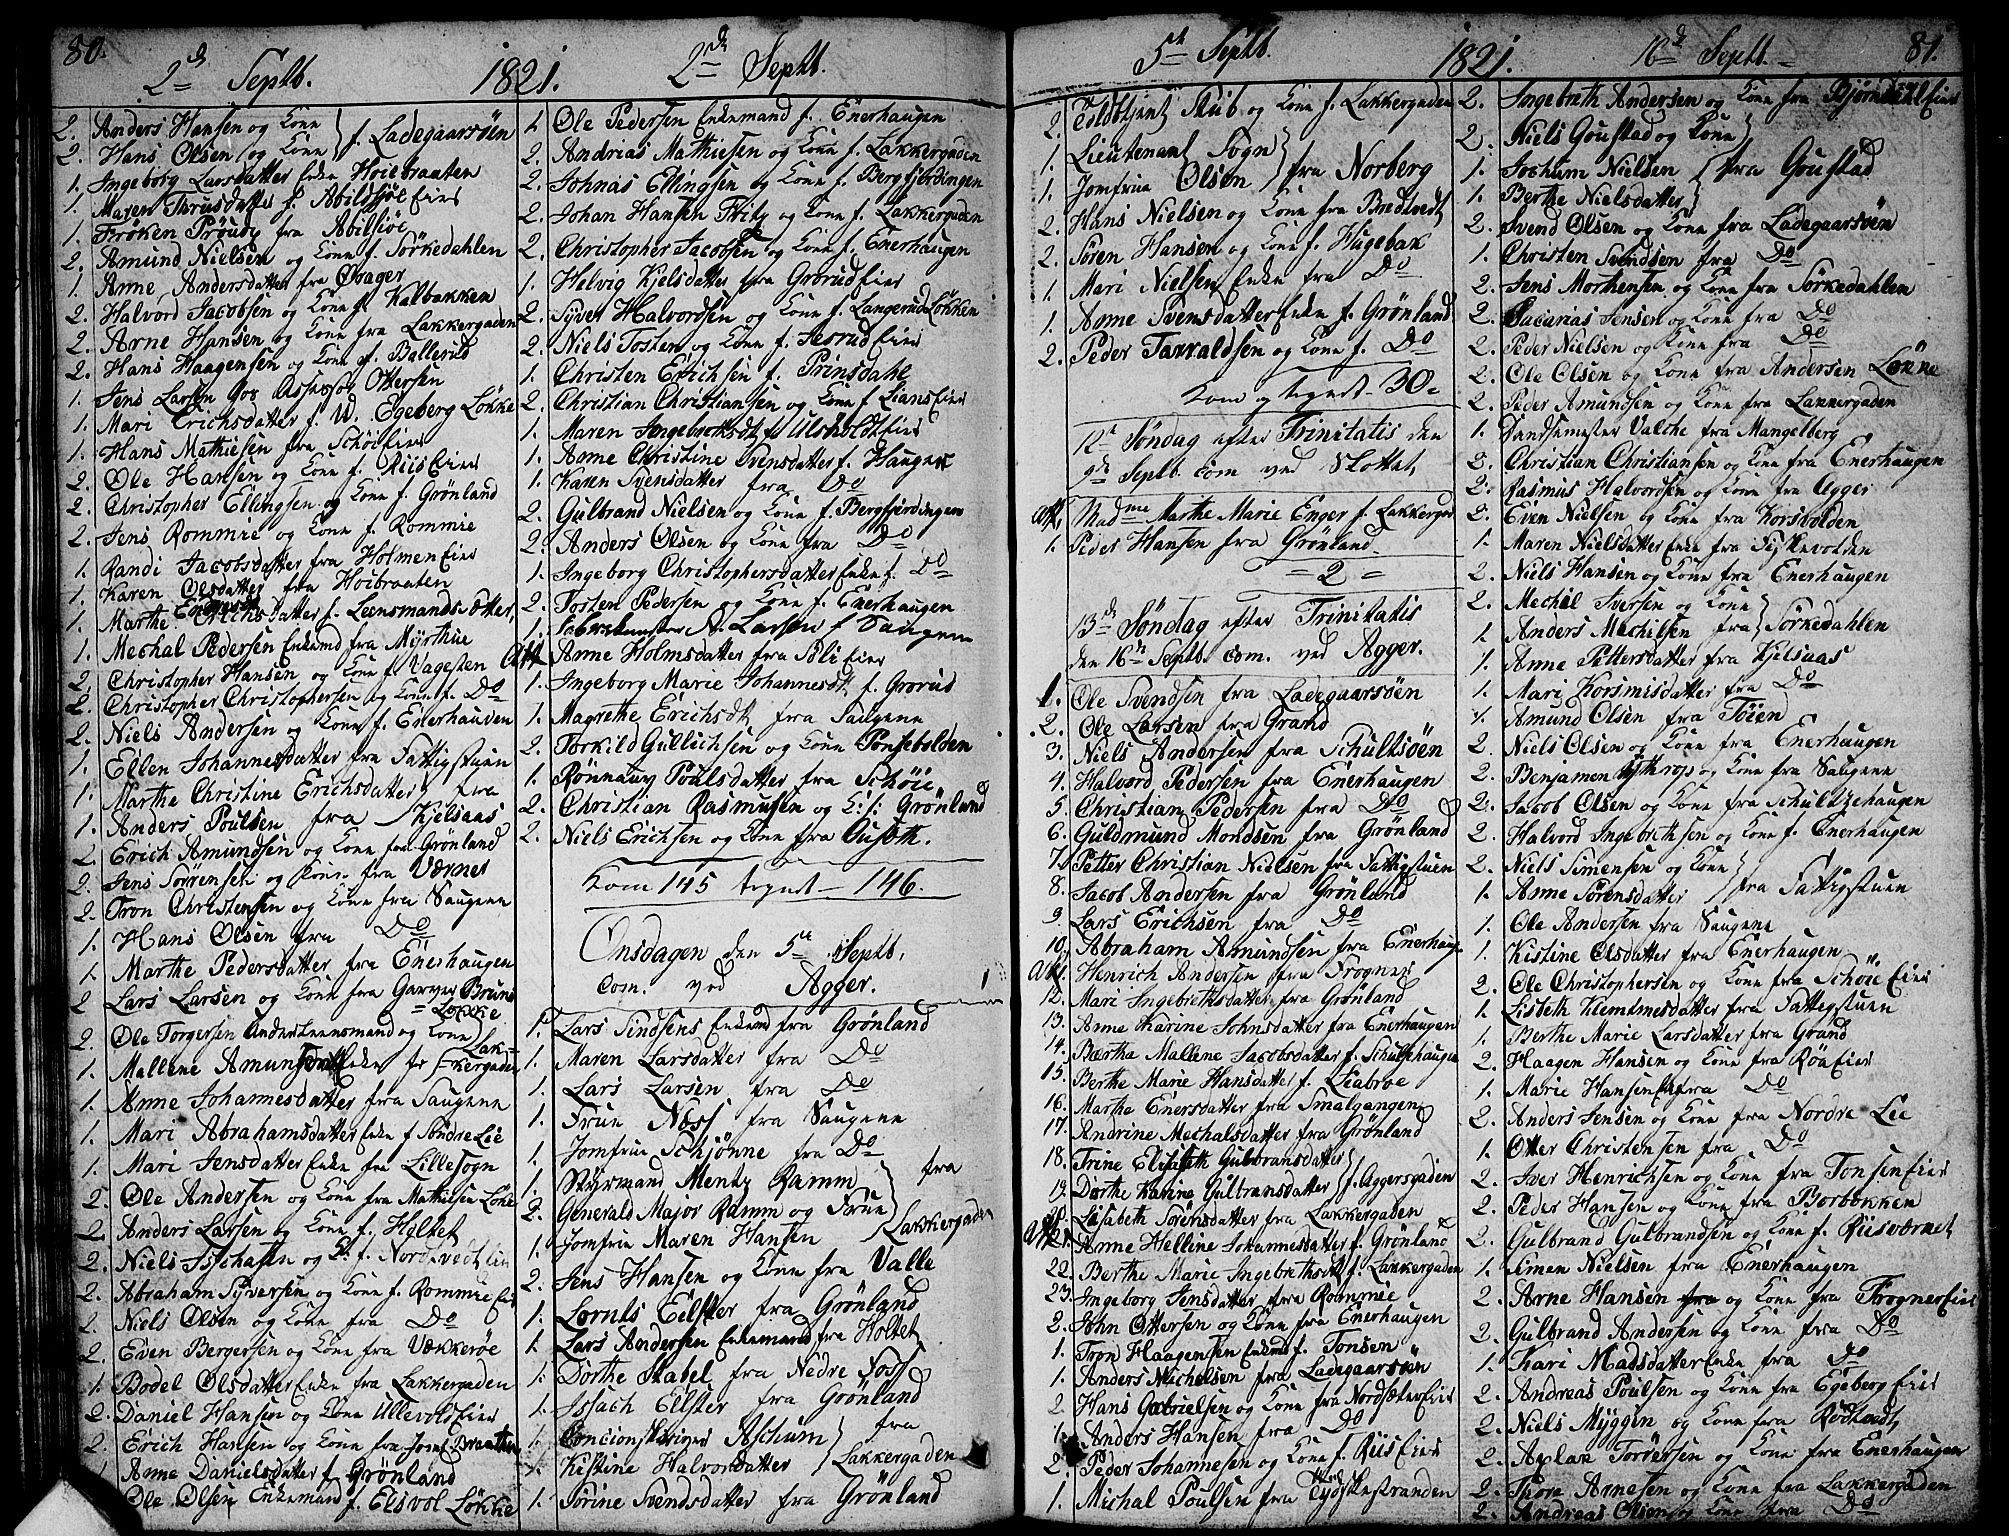 80.
2den Septb. 1821. 2den Septb.
2. Anders Hansen og Kone
2. Hans Olsen og Kone f. Ladegaarsöen
1. Ingeborg Larsdatter Enke Hoiebraaten
1. Maren f. Abildsjöe Eier
1. Fröken fra Abilsjöe
2. Amund Nielsen og Kone f. Sörkedahlen
1. Anne Andersdatter fra
2. Halvord Jacobsen og Kone f. Kalbakken
2. Arne Hansen og Kone fra Lakkergaden
2. Hans Haagensen og Kone f. Ballerud
1. Jens Larsen Ottersen
1. Mari Erichsdatter f. W. Egeberg Løkke
1. Hans Mathiesen fra Schöi Eier
2. Ole Hansen og Kone f. Riis Eier
2. Christopher Ellingsen og Kone f. Grönland
2. Jens Rommie og Kone f. Rommie
1. Randi Jacobsdatter fra Holmen Eier
1. Karen Olsdatter fra Hoibraaten
1. Marthe Erichsdatter f. Leensmands
1. Mechal Pedersen Enkemd fra Myrthue
2. Christopher Hansen og Kone f. Vagesten
2. Christopher Christophersen og Kone f. Do
2. Niels Andersen og Kone f. Enerhaugen
1. Ellen Johannesdatter fra Fattigstuen
1. Marthe Christine Erichsdatter fra
1. Anders Poulsen fra Kjelsaas
2. Erich Amundsen og Kone fra Grönland
2. Jens Sörrensen og Kone fra Værnet
2. Tron Christensen og Kone fra Saugene
1. Hans Olsen fra Do
1. Marthe Pedersdatter fra Enerhaugen
2. Lars Larsen og Kone fra Garver Bruns Løkke
2. Ole Torgersen Underleensmand og Kone
1. Mallene Enke fr Lakkergaden
1. Anne Johannesdatter fra Saugene
1. Mari Abrahamsdatter Enke f Söndre Lie
1. Mari Jensdatter Enke fra Lille Sogn
2. Ole Andersen og Kone fra Mathisen Löke
2. Anders Larsen og Kone f. Holtet
2. Niels og K. f. Nordtvedt Eier
2. Abraham Syversen og Kone f. Rommie Eier
2. Niels Olsen og Kone fra Do
2. Even Bergersen og Kone fra Vækkeröe
1. Bodel Olsdatter Enke fra Lakkergaden
2. Daniel Hansen og Kone Ullevols Eier
2. Erich Hansen og Kone fra Braathen
1. Anne Danielsdatter f. Grönland
Ole Olsen Enkemand f. Elsvol Lökke
1. Ole Pedersen Enkemand f. Enerhaugen
2. Andrias Mathiesen og Kone f. Lakkergaden
2. Johnas Ellingsen og Kone f. Bergfjerdingen
2. Johan Hansen Fritz og Kone f. Lakkergaden
2. Christopher Jacobsen og Kone f. Enerhaugen
1. Helvig Kjelsdatter fra Grorud Eier
2. Syver Halvordsen og Kone f. Langerud Løkken
2. Niels Tosten og Kone f. Eier
1. Christen Erichsen f. Prinsdahl
2. Christian Christiansen og Kone f Lians Eier
1. Maren Ingebrethsdt f. Ulsholdt Eier
1. Anne Christine Svensdatter f. Haugen
1. Karen Svensdatter fra Do
2. Gulbrand Nielsen og Kone f. Bergfjerdingen
2. Anders Olsen og Kone fra Do
1. Ingeborg Christophersdatter Enke f. Do
2. Tosten Pedersen og Kone f. Enerhaugen
1. Larsen f Saugene
Anne Holmsdatter fra Soli Eier
1. Ingeborg Marie Johannesdt f. Grorud
1. Magrethe Erichsdt fra Saugene
2. Torkild Gullichsen og Kone Ponsebolden
1. Rönnaug Poulsdatter fra Schöie
2. Christian Rasmusen og K: f: Grönland
2. Niels Erichsen og Kone fra
Kom 145 tegnet 146.
Onsdagen den 5te Septb.
com. ved Agger.
1. Lars Enkemd fra Grönland
1. Maren Larsdatter fra Do
1. Lars Larsen fra Do
1. Frue fra Saugene
1. Jomfrue Schjönne fra Do
1. Styrmand Mentz Ramm fra
2. Generald Major Ramm og Frue
1. Jomfrue Maren Hansen Lakkergaden
2. Jens Hansen og Kone fra Valle
1. Lornts Elster fra Grönland
1. Lars Andersen Enkemand fra Holtet
1. Dorthe Stabel fra Nedre Foss
1. Issach Elster fra Grönland
1. Aschum fra
1. Kistine Halvorsdatter Lakkergaden
1. Sörine Svendsdatter fra Grönland
5te Septb. 1821. 16de Septb. 81.
2. Toldbtjent Stub og Kone f. Lakkergaden
1. Lieutenant Sogn
1. Jomfrue Olsen fra Norberg
2. Hans Nielsen og Kone fra Bredtvedt
2. Sören Hansen og Kone f. Hugebak
1. Mari Nielsen Enke fra Do
1. Anne Svensdatter Enke f. Grönland
2. Peder Tarraldsen og Kone f. Do
Kom og tegnet 30
12te Söndag efter Trinitatis den
9de Septb. com ved Slottet
Madme Marthe Marie Enger f. Lakkerga
1. Peder Hansen fra Grönland
= 2 =
13de Söndag efter Trinitatis
den 16de Septb. com. ved Agger.
1. Ole Svendsen fra Ladegaarsöen
2. Ole Larsen fra Grand
3. Niels Andersen fra Schultsöen
4. Halvord Pedersen fra Enerhaugen
5. Christian Pedersen fra Do
6. Guldmund Mondsen fra Grönland
7. Petter Christian Nielsen fra Fattigstuen
8. Jacob Andersen fra Grönland
9. Lars Erichsen fra Do
10. Abraham Amundsen fra Enerhaugen
Henrich Andersen fra Frogner
12. Mari Ingebrethsdatter fra Grönland
13. Anne Karine Johnsdatter fra Enerhaugen
14. Bærtha Mallene Jacobsdatter f. Schulsehaugen
15. Berthe Marie Hansdatter f. Liabroe
16. Marthe Enersdatter fra Smalgangen
17. Andrine Mechalsdatter fra Grönland
18. Trine Elisabeth Gulbransdatter
19. Dorthe Karine Gulbransdatter f. Aggersgaden
20. Lisabeth Sörensdatter fra Lakkergaden
21. Anne Helline Johannesdatter f. Grönland
22. Berthe Marie Ingebrethsdt f. Lakkergaden
23. Ingeborg Jensdatter fra Rommie
2. John Ottersen og Kone fra Enerhaugen
1. Tron Haagensen Enkemd f. Tonsen
1. Anders Michelsen fra Ladegaarsöen
2. Hans Gabrielsen og Kone fra Nordsæter Eier
1. Anders Hansen fra Do
2. Peder Johannesen og Kone f. Riis Eier
1. Michal Poulsen fra Tydskestranden
2. Ingebreth Andersen og Kone fra Bjørndahl Eier
2. Niels Goustad og Kone
1. Jochum Nielsen fra Goustad
1. Berthe Nielsdatter
2. Svend Olsen og Kone fra Ladegaarsöen
1. Christen Svendsen fra Do
2. Jens Morthensen og Kone fra Sörkedahlen
2. Sacarias Jensen og Kone fra Do
2. Peder Nielsen og Kone fra Do
2. Ole Olsen og Kone fra Andersen Lökke
2. Peder Amundsen og Kone fra Lakkergaden
1. Dandsemester Valche fra Mangelberg
2. Christian Christiansen og Kone fra Enerhaugen
2. Rasmus Halvordsen og Kone fra Agger
2. Even Nielsen og Kone fra Korsvolden
1. Maren Nielsdatter Enke fra
2. Niels Hansen og Kone fra Enerhaugen
2. Mechal Iversen og Kone
1. Anders Mechilsen fra Sörkedahlen
1. Anne Pettersdatter fra Kjelsaas
1. Mari Korsmisdatter fra Do
1. Amund Olsen fra Töien
2. Niels Olsen og Kone fra Enerhaugen
2. Benjamen og Kone fra Saugene
2. Jacob Olsen og Kone fra Schultzehaugen
2. Halvord Ingebrethsen og Kone f. Enerhaugen
2. Niels Simensen og Kone
1. Anne Sörensdatter fra Fattigstuen
1. Ole Andersen fra Saugene
1. Kistine Olsdatter fra Enerhaugen
2. Ole Christophersen og Kone fra Schöie Eier
1. Lisbeth Klemtmesdatter fra Fattigstuen
1. Berthe Marie Larsdatter fra Grand
2. Haagen Hansen og Kone fra Roa Eier
1. Marie Hansen fra Do
2. Anders Jensen og Kone fra Nordre Lie
1. Otter Christensen fra Do
2. Iver Henrichsen og Kone fra Tonsen Eier
2. Peder Hansen og Kone fra Borbakken
2. Gulbrand Gulbrandsen og Kone f. Riisværnet
1. Simen Nielsen fra Enerhaugen
2. Arne Hansen og Kone fra Frogner Eier
2. Gulbrand Andersen og Kone fra Do
1. Kari Madsdatter Enke fra Do
2. Andreas Poulsen og Kone fra Egeberg Eier
2. Niels Myggen og Kone fra Rödtvedt
2. Torersen og Kone fra Enerhaugen
2. Thore Arnesen og Kone fra Lakkergaden
2. Andreas Olsen og Kone fra Do